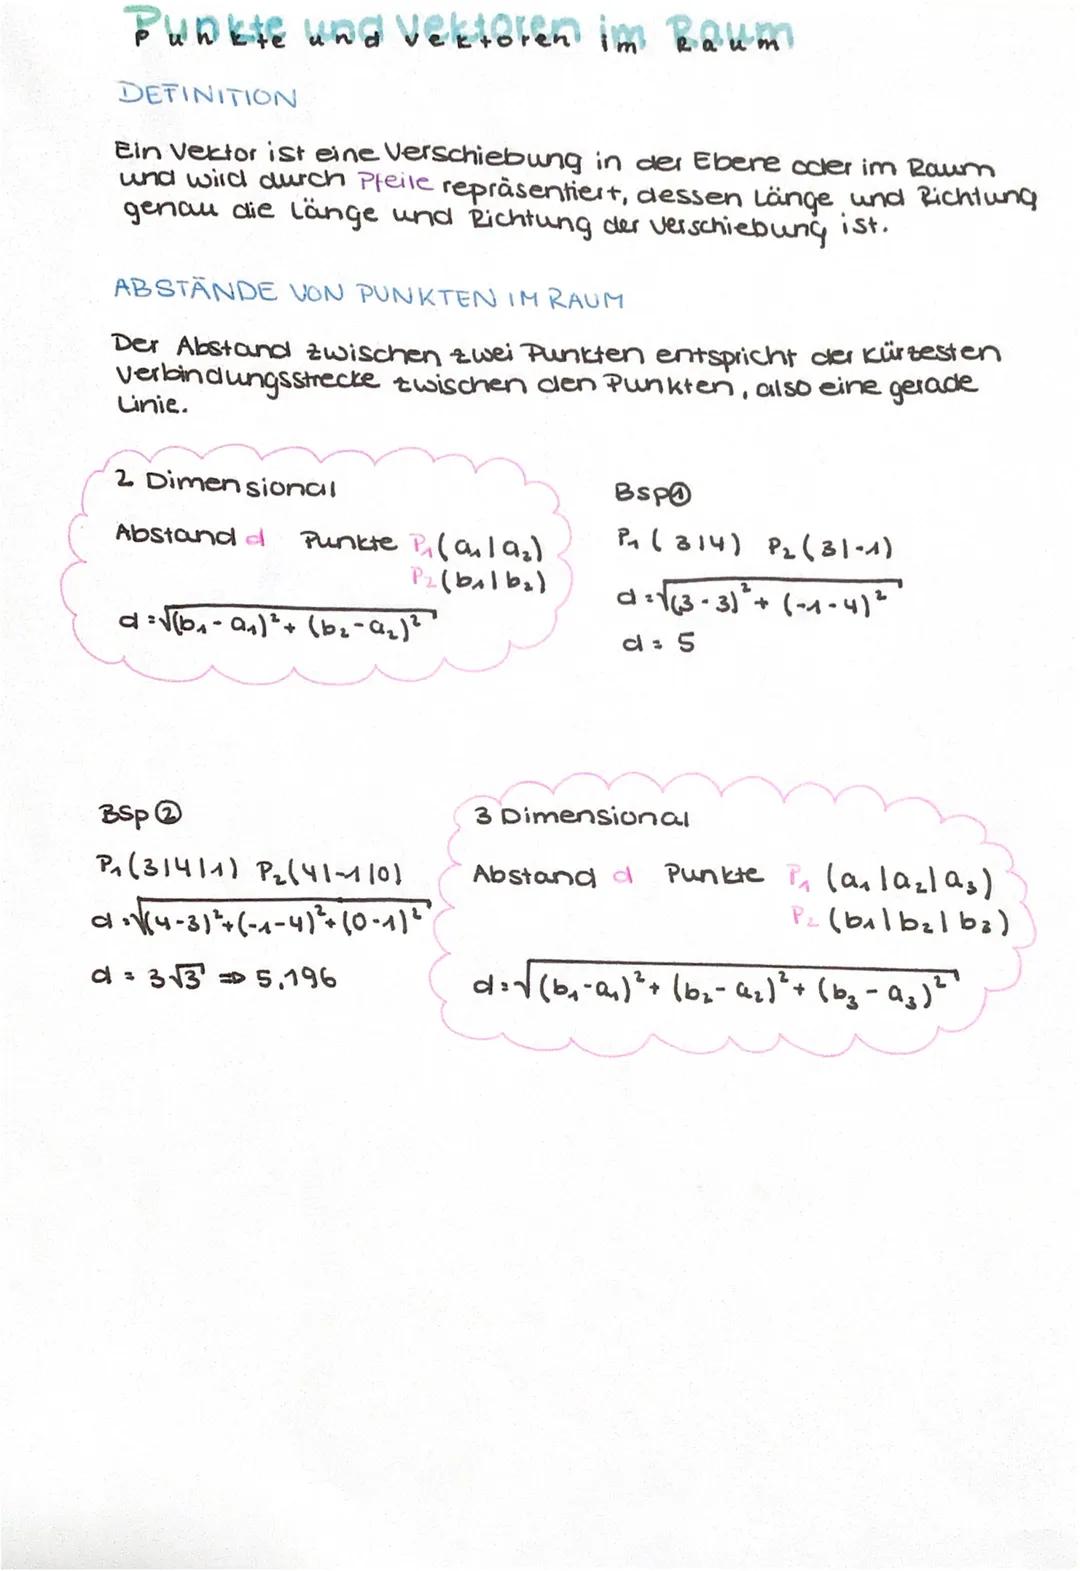 Punkte und Vektoren im Raum
DEFINITION
Ein Vektor ist eine Verschiebung in der Ebene oder im Raum
und wird durch Pfeile repräsentiert, dessen Länge und Richtung
genau die Länge und Richtung der Verschiebung ist.
ABSTÄNDE VON PUNKTEN IM RAUM
Der Abstand zwischen zwei Punkten entspricht der kürzesten
Verbindungsstrecke zwischen den Punkten, also eine gerade
Linie.
2 Dimensional
Abstand d Punkte P₁(a₁|a₂)
P₂(b₁|b₂)
d=√(b₁-a₁)²+(b₂-a₂)²
Bsp①
P₁(3|4) P₂(3|-1)
d=√(3-3)²+(-1-4)²
d=5
BSp②
P₁(3|4|1) P₂(4|-1|0)
d=√(4-3)²+(-1-4)²+(0-1)²
d=3√3 ⇒ 5,196
3 Dimensional
Abstand d Punkte P₁(a₁|a₂|a₃)
P₂(b₁|b₂|b₃)
d=√(b₁-a₁)²+(b₂-a₂)²+(b₃-a₃)²